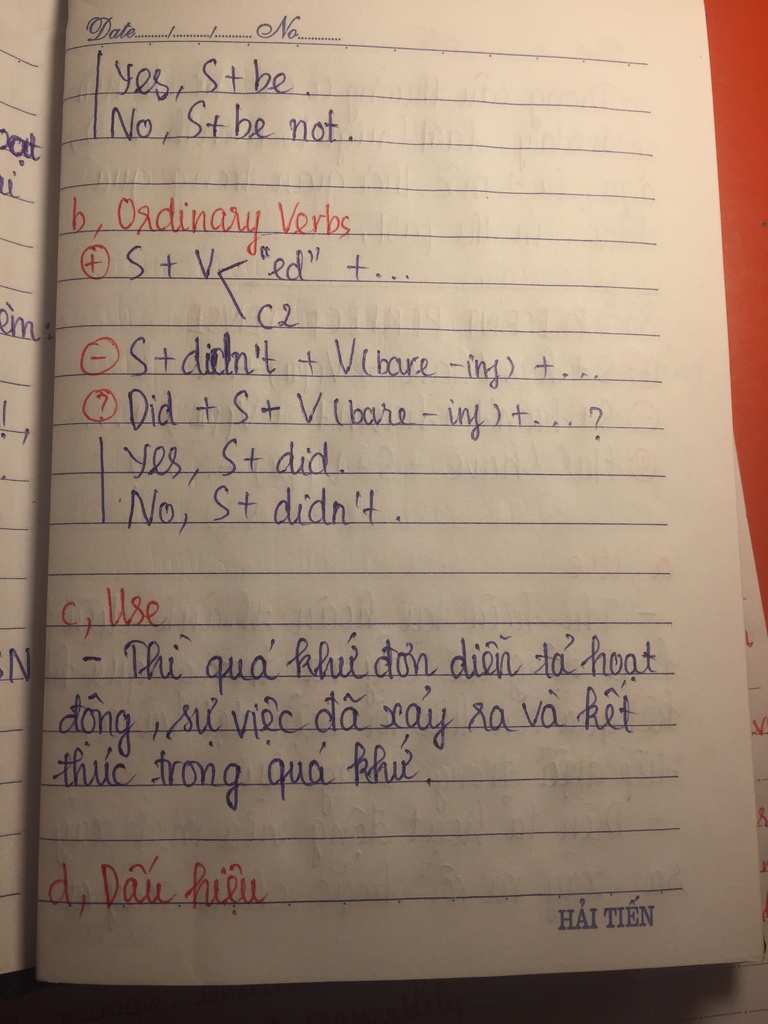 Date......../......../........ No..........
Yes, S + be.
No, S + be not.
b, Ordinary Verbs
+ S + V "ed" + ...
C2
- S + didn't + V(bare - inf) + ...
? Did + S + V (bare - inf) + ... ?
Yes, S + did.
No, S + didn't.
c, Use
- Thì quá khứ đơn diễn tả hoạt
động, sự việc đã xảy ra và kết
thúc trong quá khứ.
d, Dấu hiệu
HẢI TIẾN